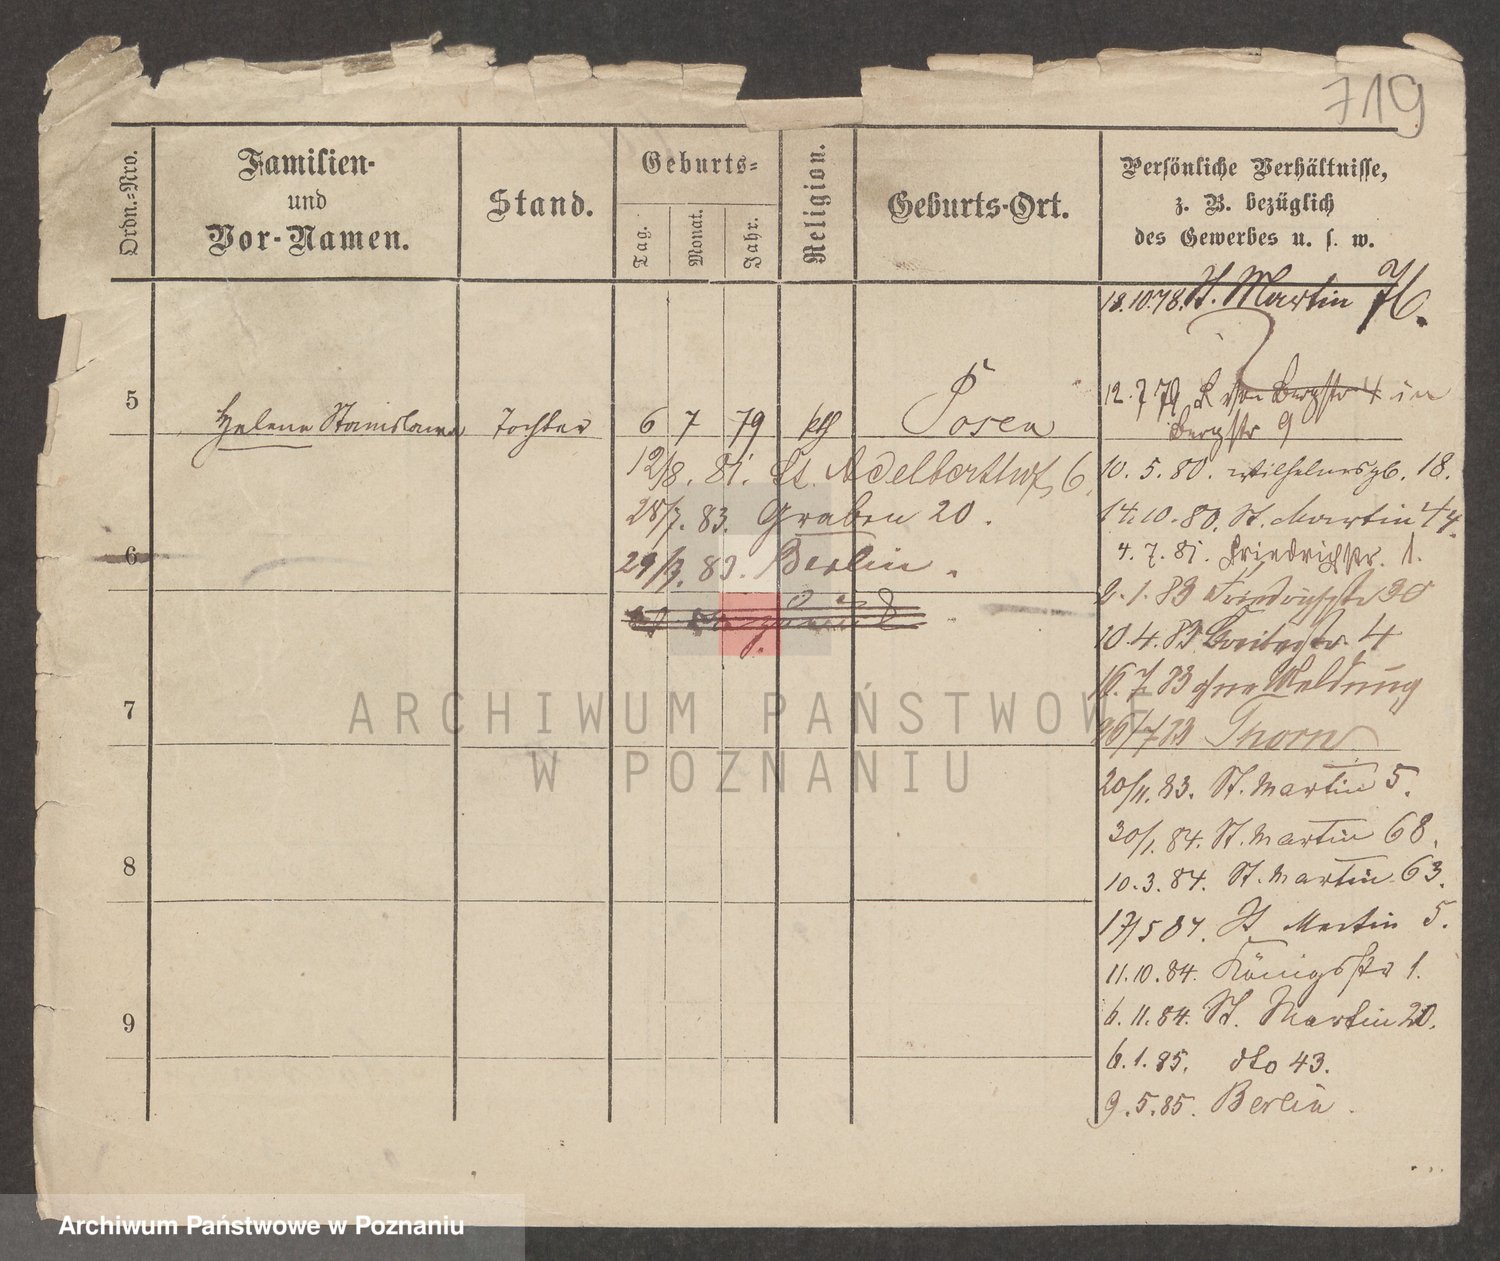 719
Ordn.-Nro.
Familien-
und
Vor-Namen.
Stand.
Geburts-
Tag.
Monat.
Jahr.
Religion.
Geburts-Ort.
Persönliche Verhältnisse,
z. B. bezüglich
des Gewerbes u. s. w.
18.10.78. St. Martin 76.
5
Helene Stanislawa Tochter 6 7 79 kth Posen
12.7.79 von Bergstr 4 in
Bergstr 9
12/8. 81. St. Adelbert 6.
10. 5. 80. Wilhelmspl. 18.
28/7. 83. Graben 20.
14.10.80. St. Martin 44.
6
29/7. 83. Berlin.
4. 7. 81. Friedrichstr. 1.
2.1.83 Friedrichstr 30
10.4.83 4
16.7.83 ohne Meldung
7
26/7 83 Thorn
20/11. 83. St. Martin 5.
30/1. 84. St. Martin 68.
8
10.3.84. St. Martin 63.
17/5 84. St Martin 5.
11.10.84. Königsstr 1.
9
6.11.84. St. Martin 20.
6.1.85. dto 43.
9.5.85. Berlin.
ARCHIWUM PAŃSTWOWE
W POZNANIU
Archiwum Państwowe w Poznaniu